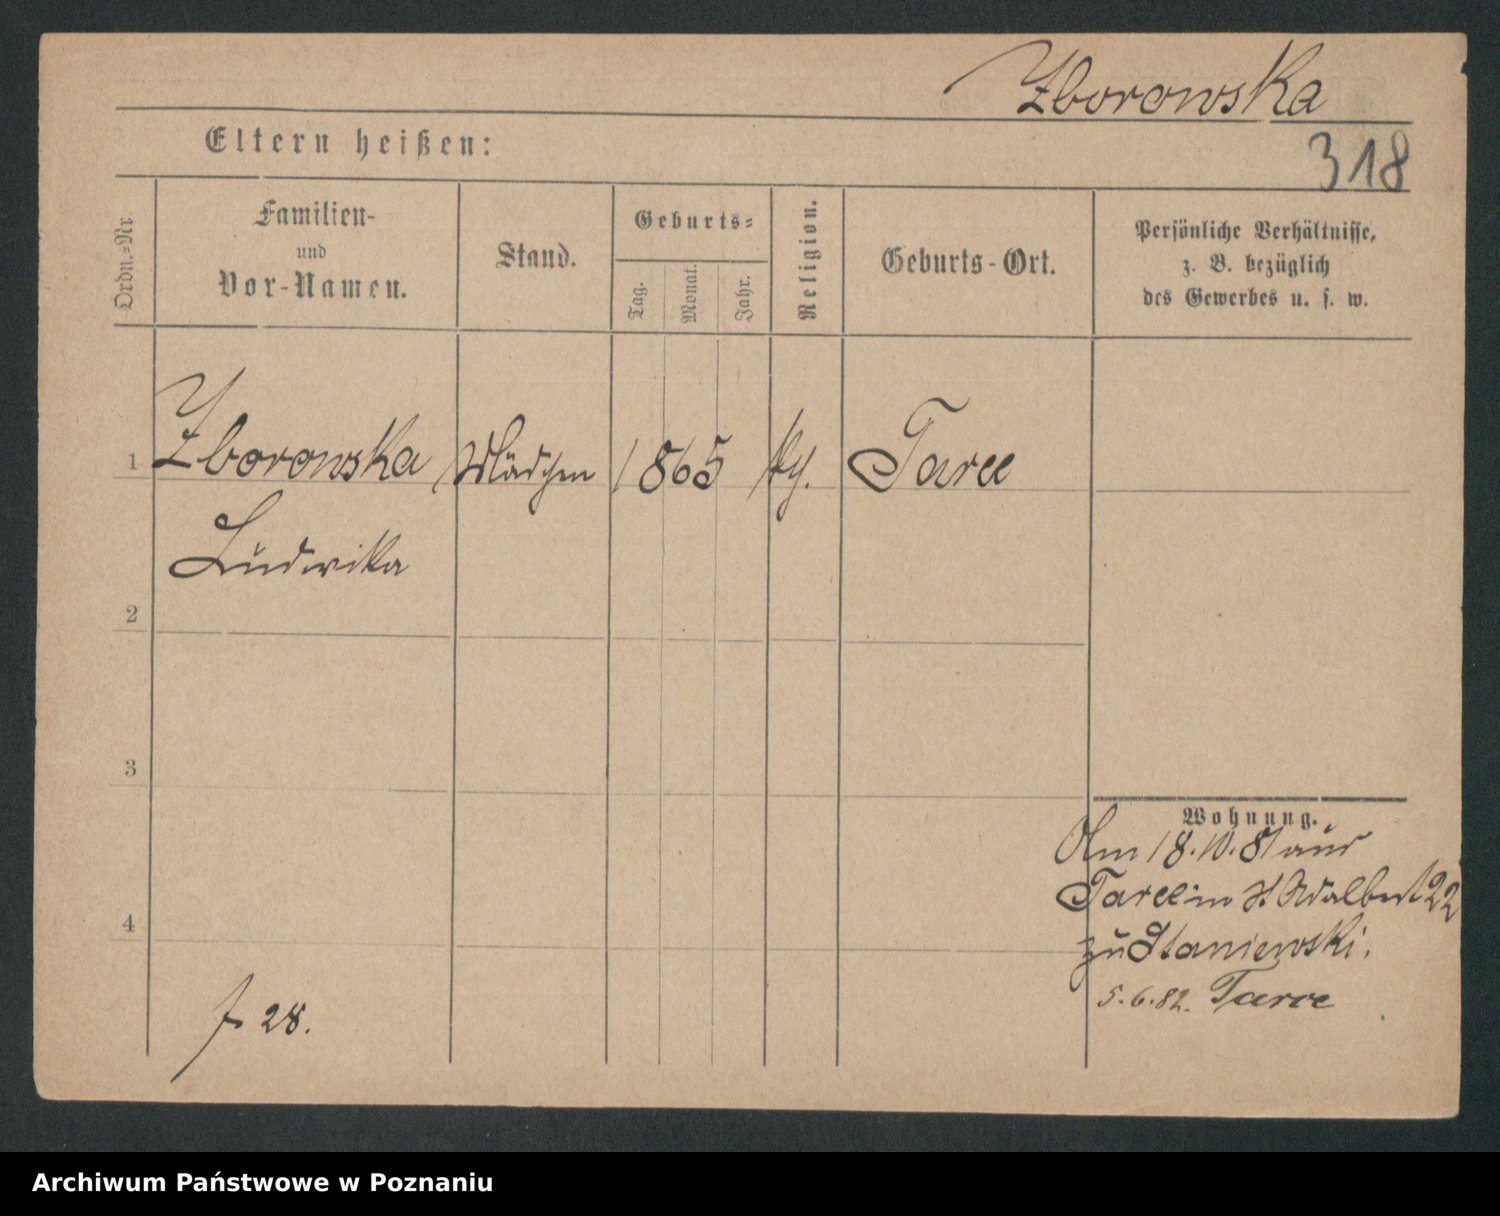 Zborowska
Eltern heißen:
318
Ordn.=Nr
Familien-
und
Vor-Namen.
Stand.
Geburts=
Tag.
Monat.
Jahr.
Religion.
Geburts-Ort.
Persönliche Verhältnisse,
z. B. bezüglich
des Gewerbes u. s. w.
1 Zborowska Mädchen 1865 Tarce
Ludwika
2
3
Wohnung.
Am 18.10.81 aus
Tarce in St Adalbert 22
4
zu Staniewski.
5.6.82. Tarce
28.
Archiwum Państwowe w Poznaniu